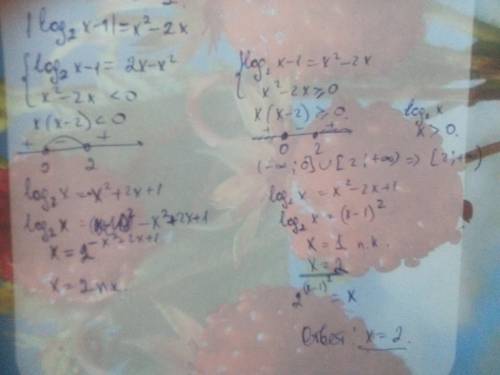 |log₂ x-1| = x²-2x
{ log₂ x-1 = 2x-x²
x²-2x < 0
x(x-2) < 0
+ - +
0 2
log₂ x = -x²+2x+1
log₂ x = -x²+2x+1
x = 2^(-x²+2x+1)
x = 2 п.к.
{ log₂ x-1 = x²-2x
x²-2x ≥ 0
x(x-2) ≥ 0.
+ - +
0 2
log₂ x
x > 0.
(-∞; 0] ∪ [2; +∞) => [2; +∞)
log₂ x = x²-2x+1
log₂ x = (x-1)²
x = 1 п.к.
x = 2
2^(x-1)² = x
Ответ: x = 2.